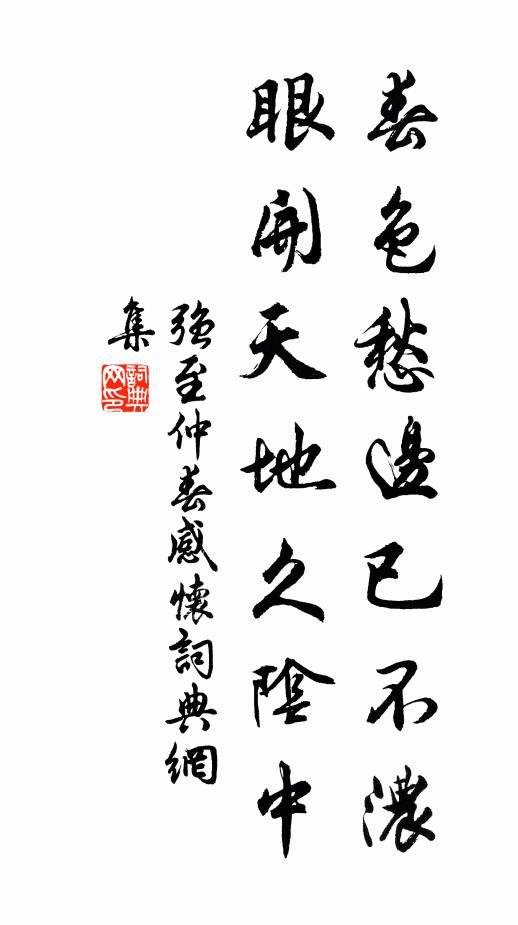 春色愁邊已不濃
眼開天地久陰中
強至仲春感懷詞典網
集
詞典
网印